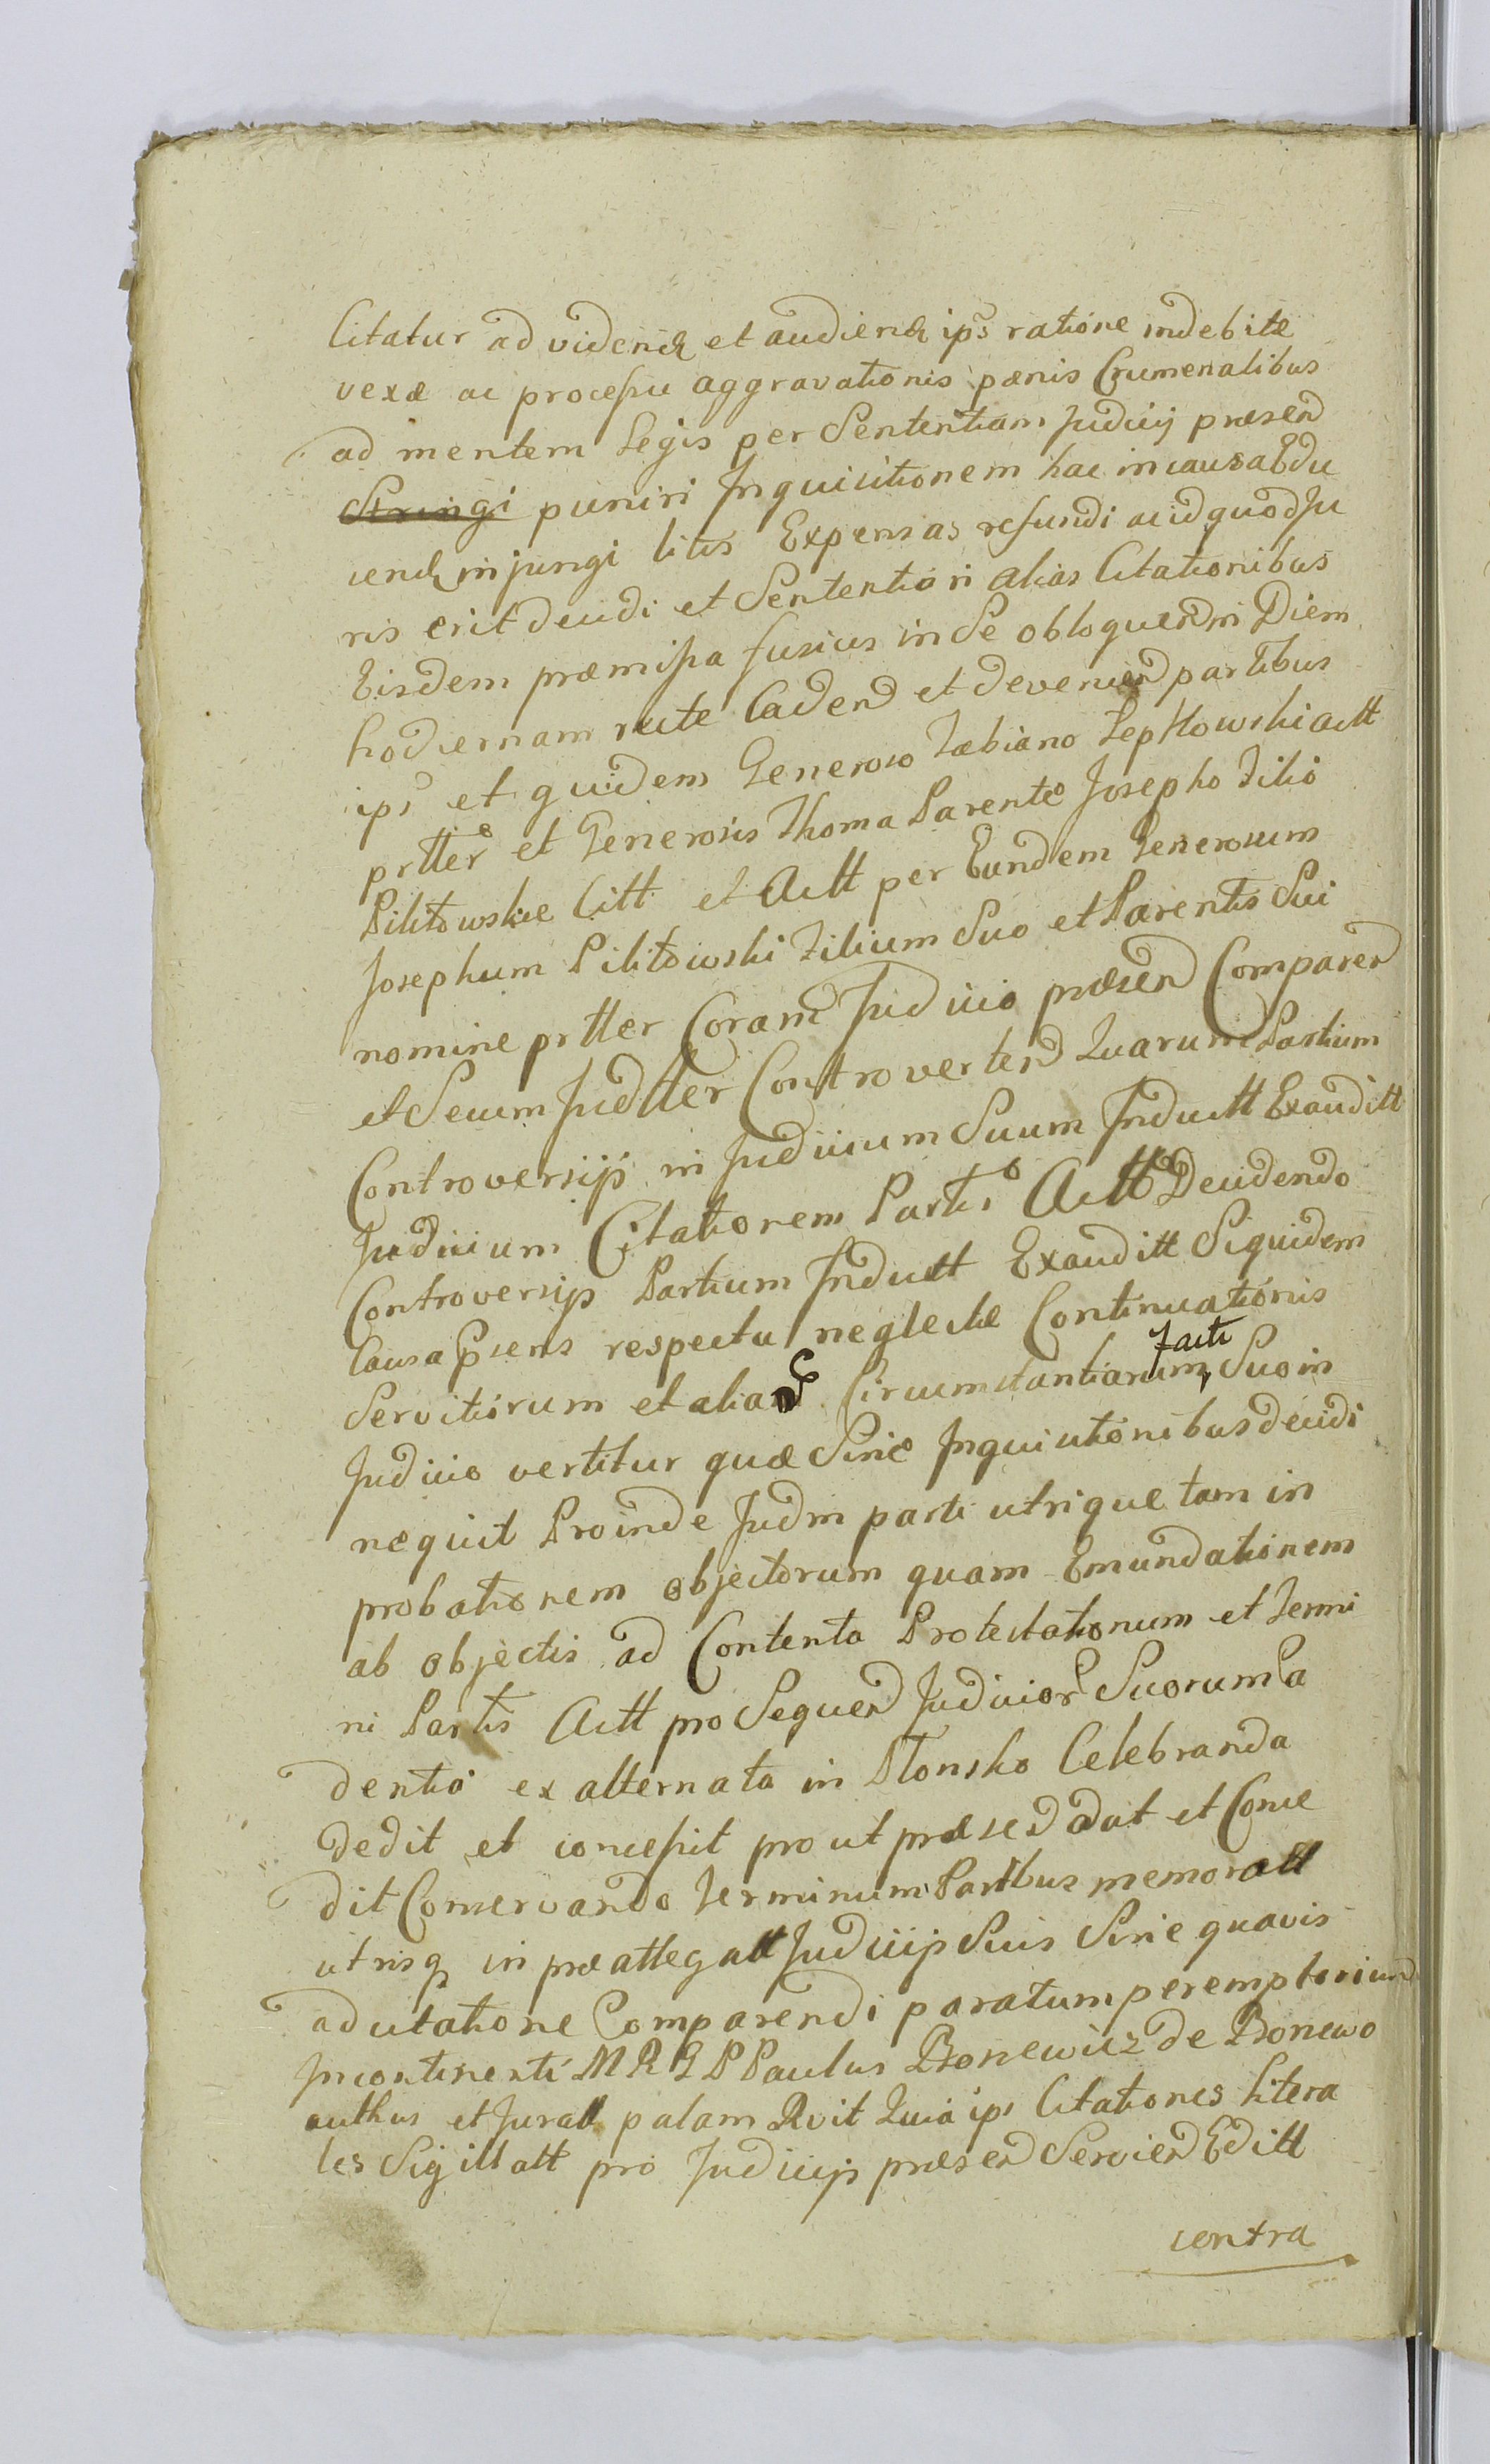 Citatur ad videnđ et audienđ ips ratione indebitæ
vexæ ac processu aggravationis pænis Crumenalibus
ad mentem Legis per Sententiam Judicij præsenđ
Stringi puniri Inquisitionem hac in causa Edu
cenđ injungi litis Expensas refundi ac id quod Ju
ris erit decidi et Sententiari alias Citationibus
Eisdem præmissa fusius in Se obloquenđ in Diem
hodiernam recte Cadenđ et devenienđ partibus
ips et quidem Generoso Fabiano Leptłowski Actt
prtter et Generosis Thoma Parente Josepho Filio
Pilitowskie Citt et Actt per Eundem Generosum
Josephum Pilitowski Filium Suo et Parentis Sui
nomine prtter Coram Judicio præsenđ Comparenđ
et Secum Judtter Controvertenđ Quarum Partium
Controversijs in Judicium Suum Inductt Exauditt
Judicium Citationem Partis Actt Decidendo
Controversijs Partium Inductt Exauditt Siquidem
Causa Psens respectu neglectæ Continuationis
Servitiorum et aliar Circumstantiarum Facti Suo in
Judicio vertitur quæ Sine Inquisitionibus decidi
nequit Proinde Judm parti utrique tam in
probationem objectorum quam Emundationem
ab objectis ad Contenta Protestationum et Termi
ni Partis Actt pro Sequenđ Judicior Suorum Ca
dentia ex alternata in Płonsko Celebranda
dedit et concessit prout præsenđ dat et Conce
dit Conservando Terminum Partibus memoratt
utrisq in præallegatt Judicijs Suis Sine quavis
adcitatione Comparendi paratum peremptorium
Incontinenti M R G P Paulus Bonewicz de Bonewo
authus et Juratt palam Rvit Quia ips Citationes litera
les Sigillatt pro Judicijs præsenđ Servienđ Editt
contra